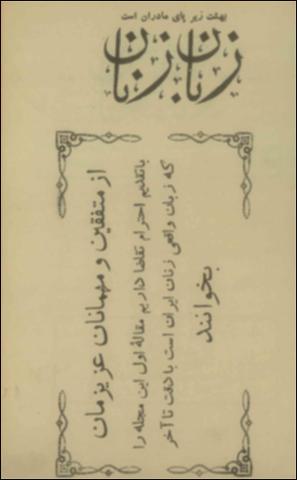 بهشت زیر پای مادران است
زبان زنان
از متفقین و مهمانان عزیزمان
با تقدیم احترام تقاضا داریم مقالهٔ اول این مجله را
که زبان واقعی زنان ایران است با دقت تا آخر
بخوانند